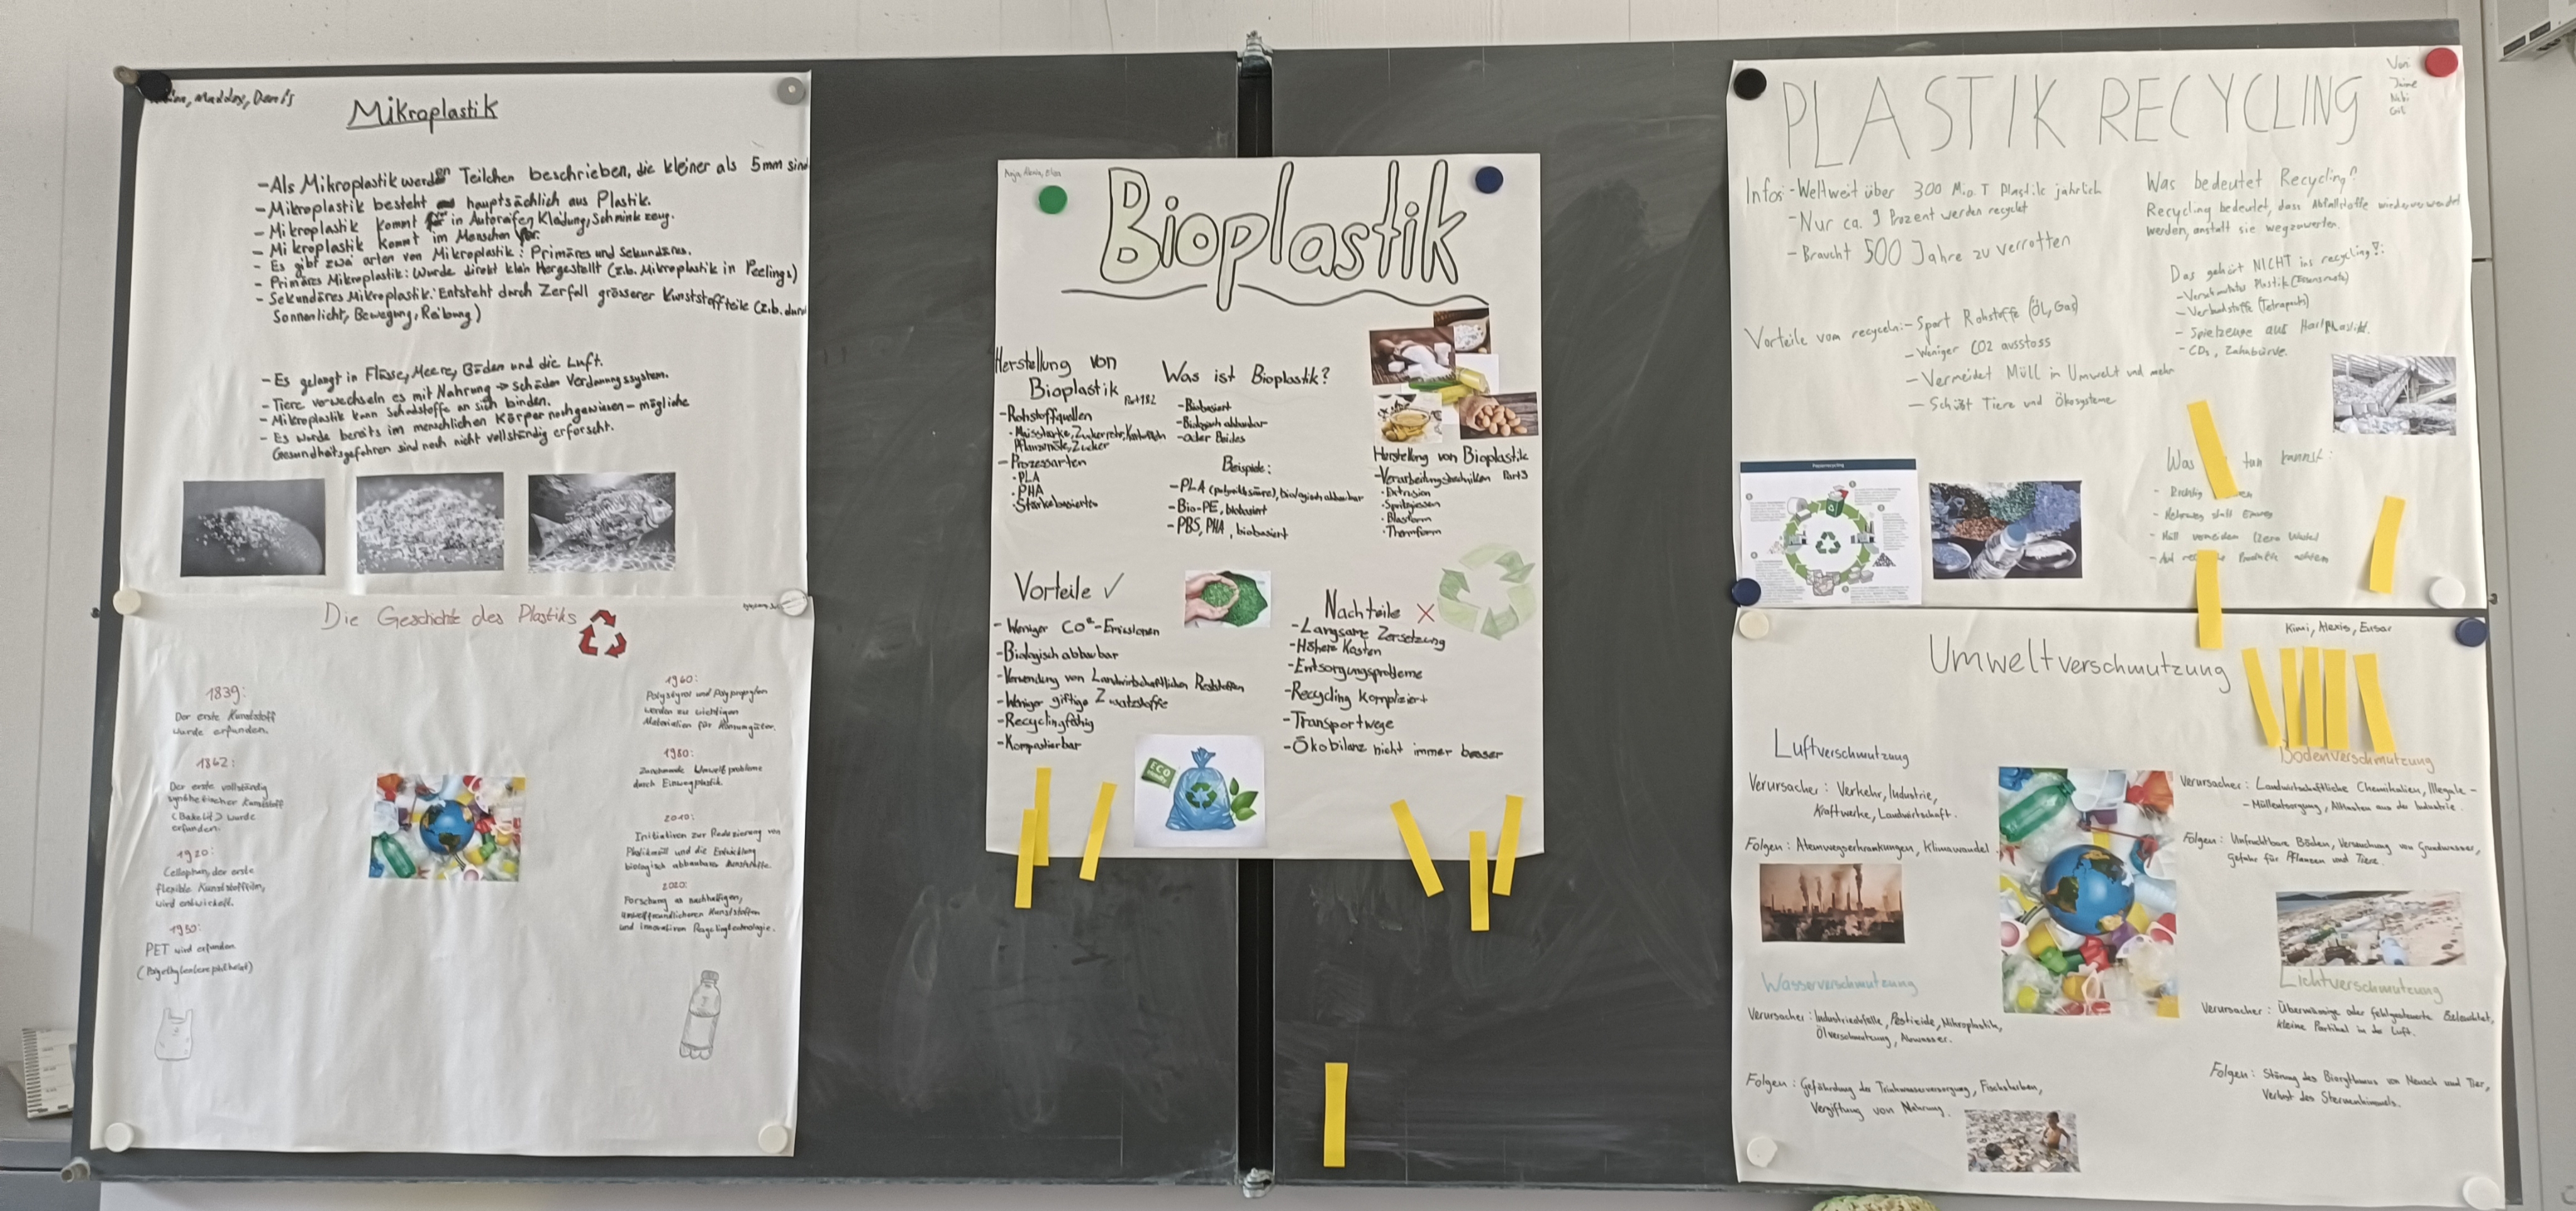 Maddox, Denis
Mikroplastik
-Als Mikroplastik werden Teilchen beschrieben, die kleiner als 5mm sind
-Mikroplastik besteht hauptsächlich aus Plastik.
-Mikroplastik kommt in Autoreifen, Kleidung, Schminkzeug.
-Mikroplastik kommt im Menschen vor.
- Es gibt zwei arten von Mikroplastik: Primäres und Sekundäres.
- Primäres Mikroplastik: Wurde direkt klein Hergestellt (z.b. Mikroplastik in Peelings)
- Sekundäres Mikroplastik: Entsteht durch Zerfall grösserer Kunststoffteile (z.b. durch
Sonnenlicht, Bewegung, Reibung)
- Es gelangt in Flüsse, Meere, Böden und die Luft.
- Tiere verwechseln es mit Nahrung → Schäden Verdauungssystem.
- Mikroplastik kann Schadstoffe an sich binden.
- Es wurde bereits im menschlichen Körper nachgewiesen - mögliche
Gesundheitsgefahren sind noch nicht vollständig erforscht.
Die Geschichte des Plastiks
1839:
Der erste Kunststoff
wurde erfunden.
1862:
Der erste vollständig
synthetischer Kunststoff
(Bakelit) wurde
erfunden.
1920:
Cellophan, der erste
flexible Kunststofffilm,
wird entwickelt.
1950:
PET wird erfunden
1960:
Polystyrol und Polypropylen
werden zu wichtigen
Materialien für Konsumgüter.
1980:
Zunehmende Umweltprobleme
durch Einwegplastik.
2010:
Initiativen zur Reduzierung von
Plastikmüll und die Entwicklung
biologisch abbaubarer Kunststoffe.
2020:
Forschung an nachhaltigen,
umweltfreundlicheren Kunststoffen
und innovativen Recyclingtechnologie.
Bioplastik
Herstellung von
Bioplastik Part 1&2
-Rohstoffquellen
·Maisstärke, Zuckerrohr, Kartoffeln
Pflanzenöle, Zucker
-Prozessarten
·PLA
·PHA
·Stärkebasiertes
Was ist Bioplastik?
-Biobasiert
-Biologisch abbaubar
-oder Beides
Beispiele:
-PLA (polymilchsäure), biologisch abbaubar
-Bio-PE, biobasiert
-PBS, PHA, biobasiert
Herstellung von Bioplastik
-Verarbeitungstechniken Part 3
·Extrusion
·Spritzgiessen
·Blasform
·Thermform
Vorteile ✓
- Weniger CO²-Emissionen
-Biologisch abbaubar
-Verwendung von Landwirtschaftlichen Reststoffen
-Weniger giftige Zusatzstoffe
-Recyclingfähig
-Kompostierbar
ECO
Nachteile X
-Langsame Zersetzung
-Höhere Kosten
-Entsorgungsprobleme
-Recycling kompliziert
-Transportwege
-Ökobilanz nicht immer besser
PLASTIK RECYCLING
Von
Infos: -Weltweit über 300 Mio. T Plastik jährlich
-Nur ca. 9 Prozent werden recycelt
- Braucht 500 Jahre zu verrotten
Vorteile vom recyceln: - Spart Rohstoffe (Öl, Gas)
- Weniger CO2 ausstoss
- Vermeidet Müll in Umwelt und mehr
- Schützt Tiere und Ökosysteme
Was bedeutet Recycling?
Recycling bedeutet, dass Abfallstoffe wiederverwendet
werden, anstatt sie wegzuwerfen.
Das gehört NICHT ins recycling!:
- Verschmutztes Plastik (Essensreste)
- Verbundstoffe (Tetrapack)
- Spielzeuge aus Hartplastik.
- CDs, Zahnbürste.
Was tun kannst:
- Richtig
- Mehrweg statt Einweg
- Müll vermeiden (Zero Waste)
- Auf Produkte achten
Kimi, Alexis, Ensar
Umweltverschmutzung
Luftverschmutzung
Verursacher: Verkehr, Industrie,
Kraftwerke, Landwirtschaft.
Folgen: Atemwegserkrankungen, Klimawandel.
Wasserverschmutzung
Verursacher: Industrieabfälle, Pestizide, Mikroplastik,
Ölverschmutzung, Abwasser.
Folgen: Gefährdung der Trinkwasserversorgung, Fischsterben,
Vergiftung von Nahrung.
Bodenverschmutzung
Verursacher: Landwirtschaftliche Chemikalien, Illegale-
-Müllentsorgung, Altlasten aus der Industrie.
Folgen: Unfruchtbare Böden, Verseuchung von Grundwasser,
Gefahr für Pflanzen und Tiere.
Lichtverschmutzung
Verursacher: Übermässige oder fehlgesteuerte
kleine Partikel in der Luft.
Folgen: Störung des Biorythmus von Mensch und Tier,
Verlust des Sternenhimmels.